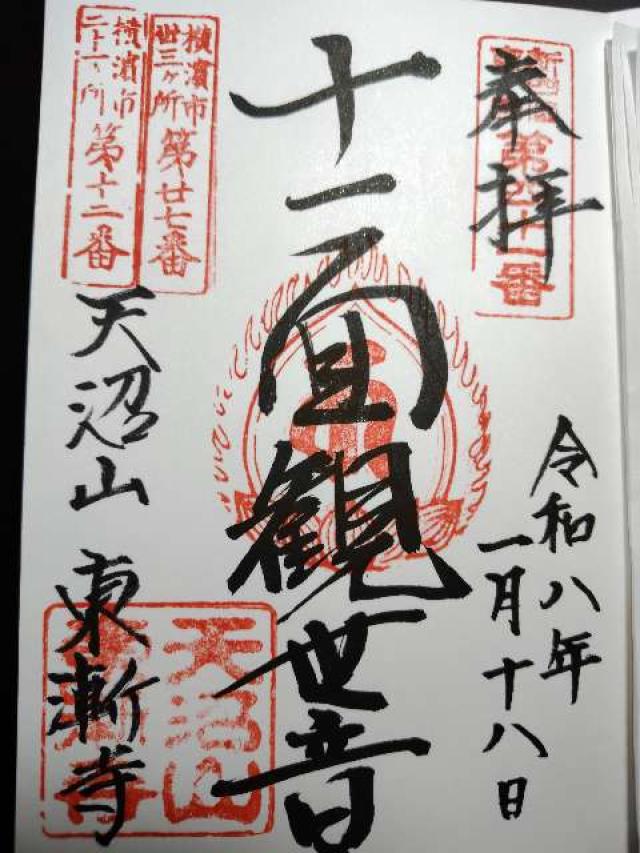 奉拝
令和八年
一月十八日
十一面観世音
横濱市
卅三ヶ所 第廿七番
横濱市
二十一ヶ所 第十二番
天沼山 東漸寺
天沼山
東漸寺